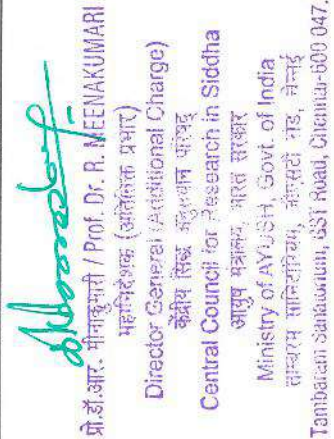 प्रो.डॉ.आर. मीनाकुमारी / Prof. Dr. R. MEENAKUMARI
महानिदेशक (अतिरिक्त प्रभार)
Director General (Additional Charge)
केंद्रीय सिद्ध अनुसंधान परिषद्
Central Council for Research in Siddha
आयुष मंत्रालय, भारत सरकार
Ministry of AYUSH, Govt. of India
ताम्बरम सानिटोरियम, जीएसटी रोड, चेन्नई
Tambaram Sanatorium, GST Road, Chennai-600 047.